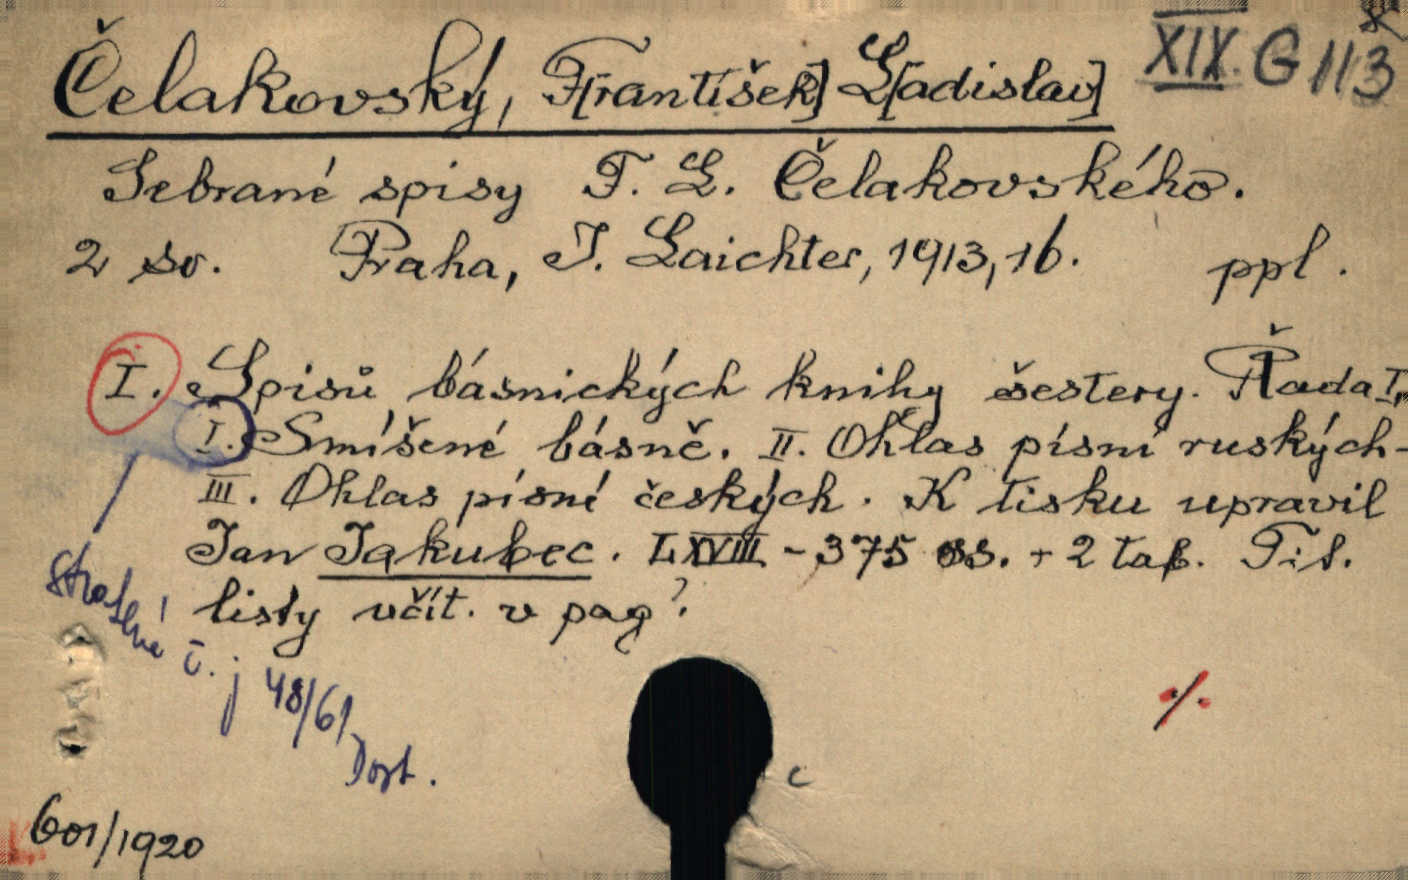 XIX. G 113
Čelakovský, F[rantišek] L[adislav]
Sebrané spisy F. L. Čelakovského.
2 sv. Praha, J. Laichter, 1913, 16. ppl.
I. Spisů básnických knihy šestery. Řada I,
I. Smíšené básně. II. Ohlas písní ruských-
III. Ohlas písní českých. K tisku upravil
Jan Jakubec. LXVIII - 375 ss. + 2 tab. Tit.
listy včít. v pag.
ztracené č. j 48/61
Dost.
%
c
601/1920